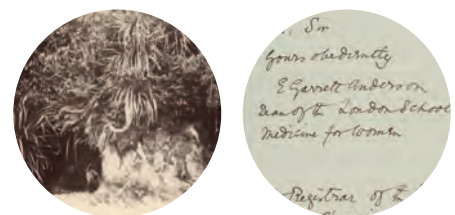 Sir
Yours obediently
E Garrett Anderson
Dean of the London School
Medicine for Women
Registrar of